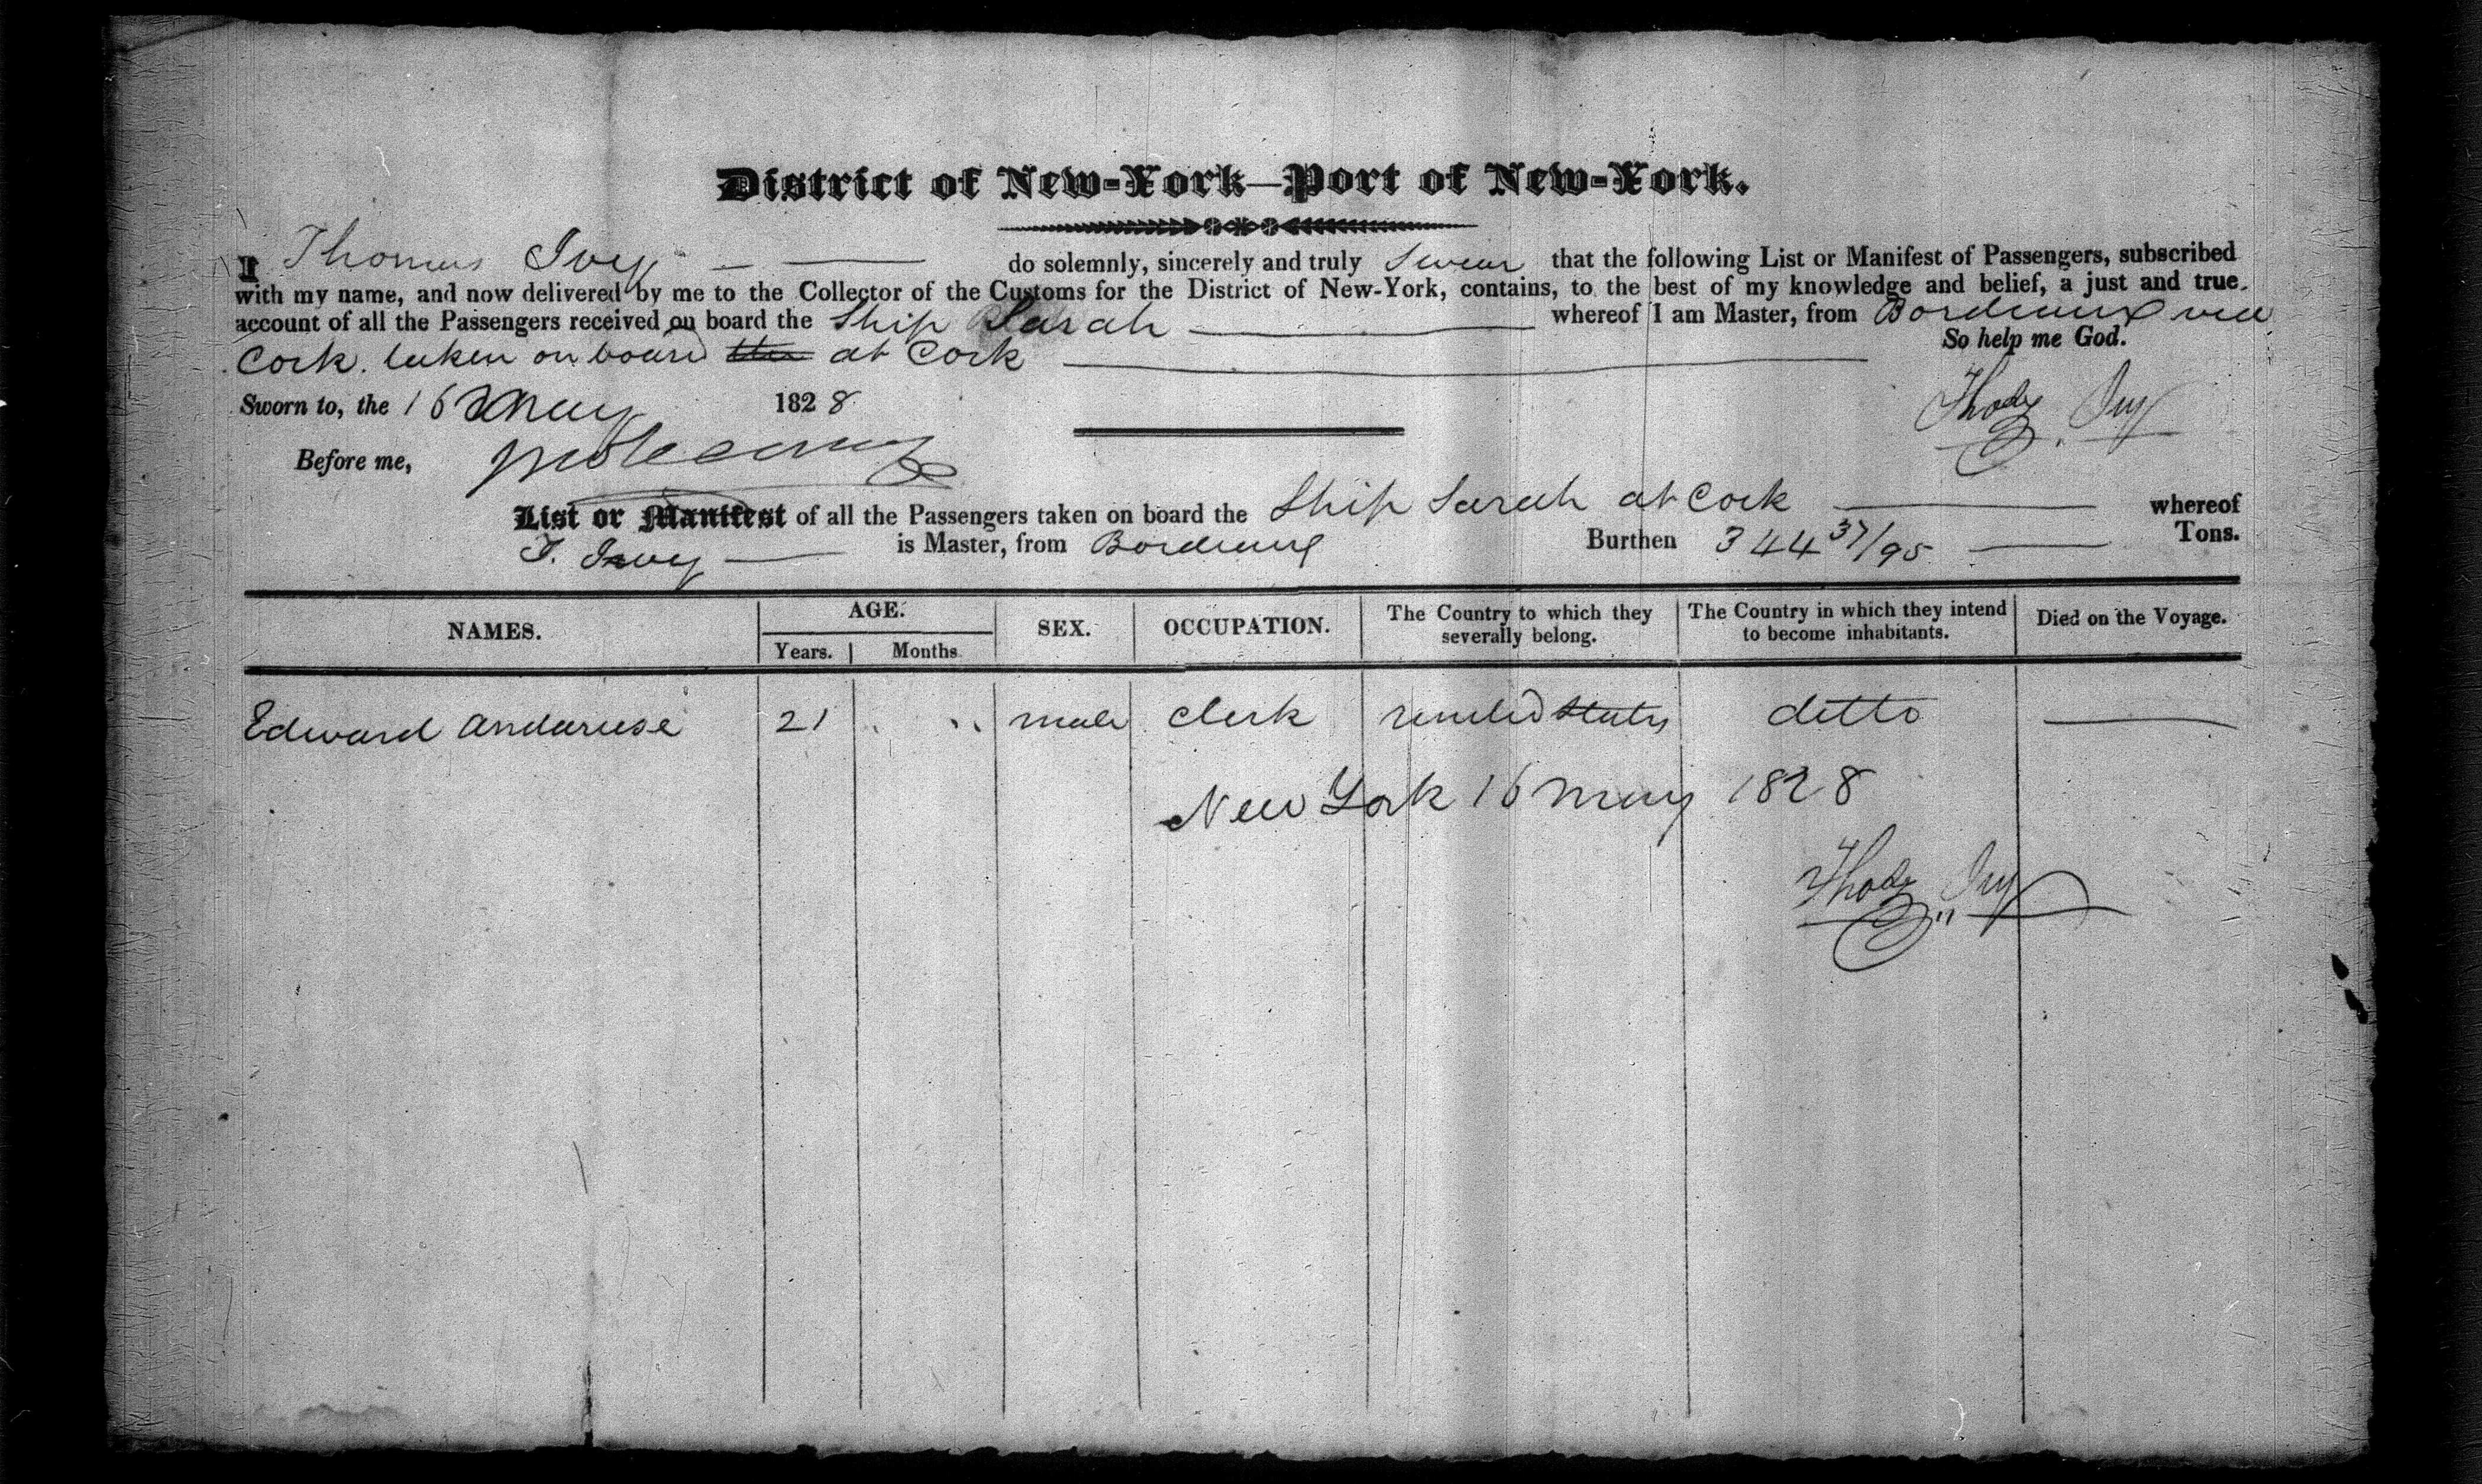 District of New-York—Port of New-York.
I Thomas Ivy — — do solemnly, sincerely and truly Swear that the following List or Manifest of Passengers, subscribed
with my name, and now delivered by me to the Collector of the Customs for the District of New-York, contains, to the best of my knowledge and belief, a just and true
account of all the Passengers received on board the Ship Sarah — whereof I am Master, from Bordeaux via
Cork. taken on board at Cork — So help me God.
Sworn to, the 16 May 1828 Thos Ivy
Before me,
List or Manifest of all the Passengers taken on board the Ship Sarah at Cork — whereof
T. Ivey — is Master, from Bordeaux Burthen 344 37/95 — Tons.
NAMES. AGE. Years. Months. SEX. OCCUPATION. The Country to which they severally belong. The Country in which they intend to become inhabitants. Died on the Voyage.
Edward Andaruse 21 " " male clerk united States ditto —
New York 16 May 1828
Thos Ivy